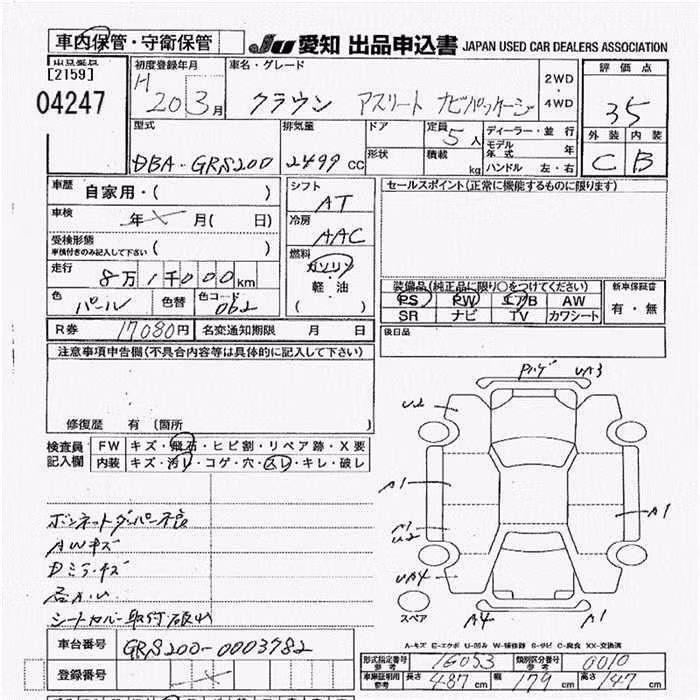 車内保管・守衛保管 JU 愛知 出品申込書 JAPAN USED CAR DEALERS ASSOCIATION
出品番号 初度登録年月 車名・グレード 2WD 評価点
[2159] H 20 3月 クラウン アスリート ナビパッケージ ・
04247 4WD 35
型式 排気量 ドア 定員 5人 ディーラー・並行 外装 内装
モデル年式 年
DBA-GRS200 2499CC 形状 積載 kg ハンドル 左・右 C B
車歴 自家用・( ) シフト AT セールスポイント(正常に機能するものに限ります)
車検 年 月( 日) 冷房 AAC
受検形態 車検付きのみ記入して下さい ( ) 燃料
走行 8万1千000km ガソリン 装備品(純正品に限り○をつけてください) 新車保証書
色 パール 色替 色コード 062 軽・油 PS PW エアB AW 有・無
( ) SR ナビ TV カワシート
R券 17080円 名変通知期限 月 日 後日品
注意事項申告欄(不具合内容等は具体的に記入して下さい)
ハゲ UA3
U2
修復歴 有(箇所 )
検査員記入欄 FW キズ・飛石・ヒビ割・リペア跡・X要
内装 キズ・汚レ・コゲ・穴・スレ・キレ・破レ
A1 A1
ボンネットダンパー不良 A1
U2
AWキズ
Dミラーキズ UA4
シートカバー取付 スペア A4 A1
A-キズ E-エクボ U-凹み W-補修跡 S-サビ C-腐食 XX-交換済
車台番号 GRS200-0003782
形式指定番号 参考 16053 類別区分番号 参考 0010
登録番号 車庫証明用 参考 長さ 487cm 幅 179cm 高さ 147cm